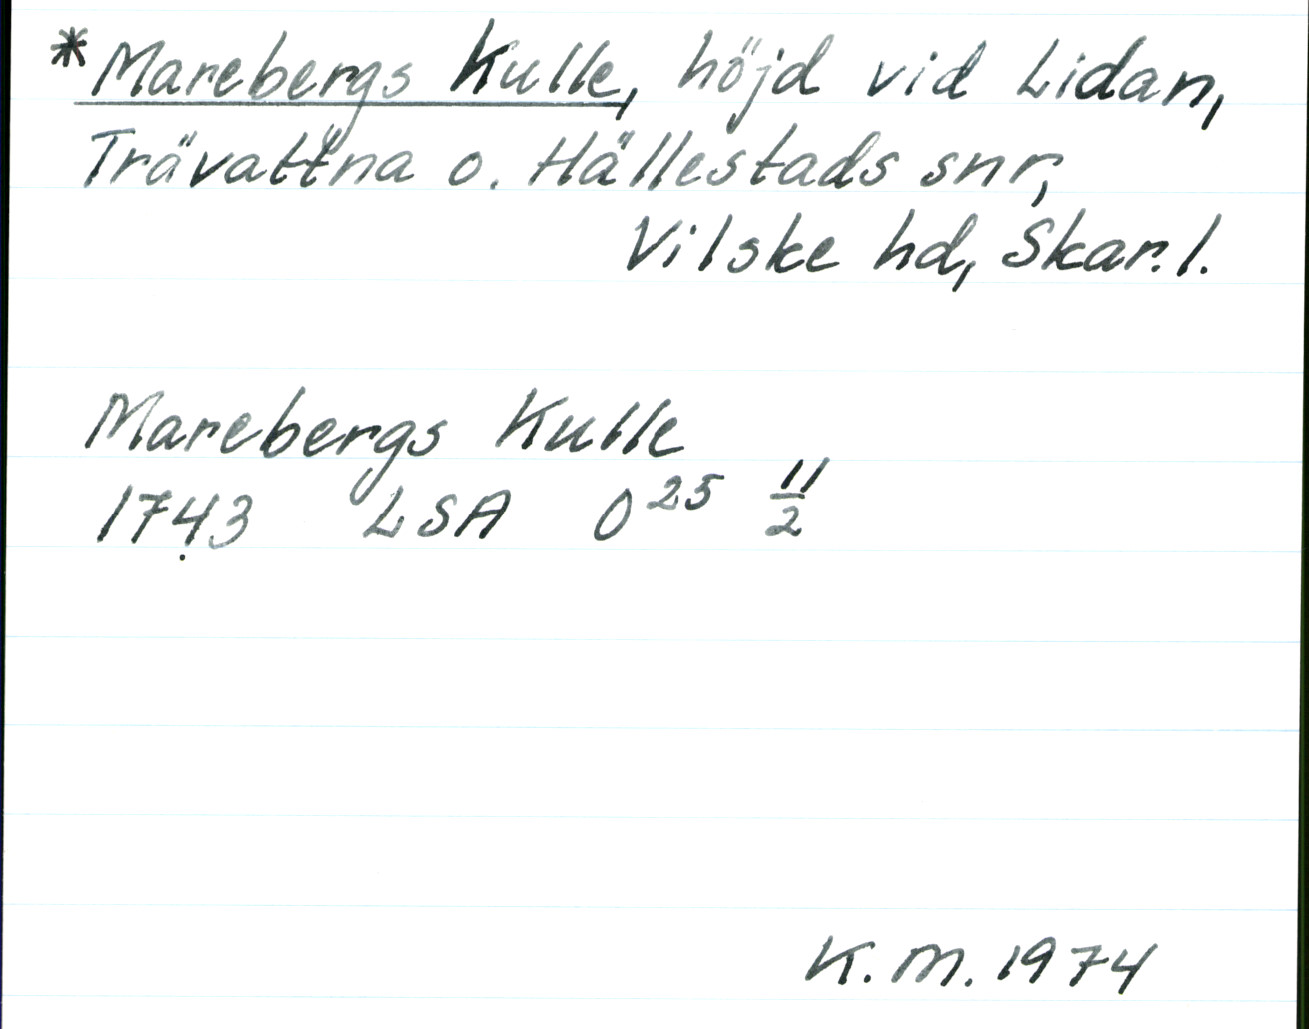 *Marebergs Kulle, höjd vid Lidan,
Trävattna o. Hällestads snr,
Vilske hd, Skar. l.
Marebergs Kulle
1743 LSA O25 11/2
K.M. 1974